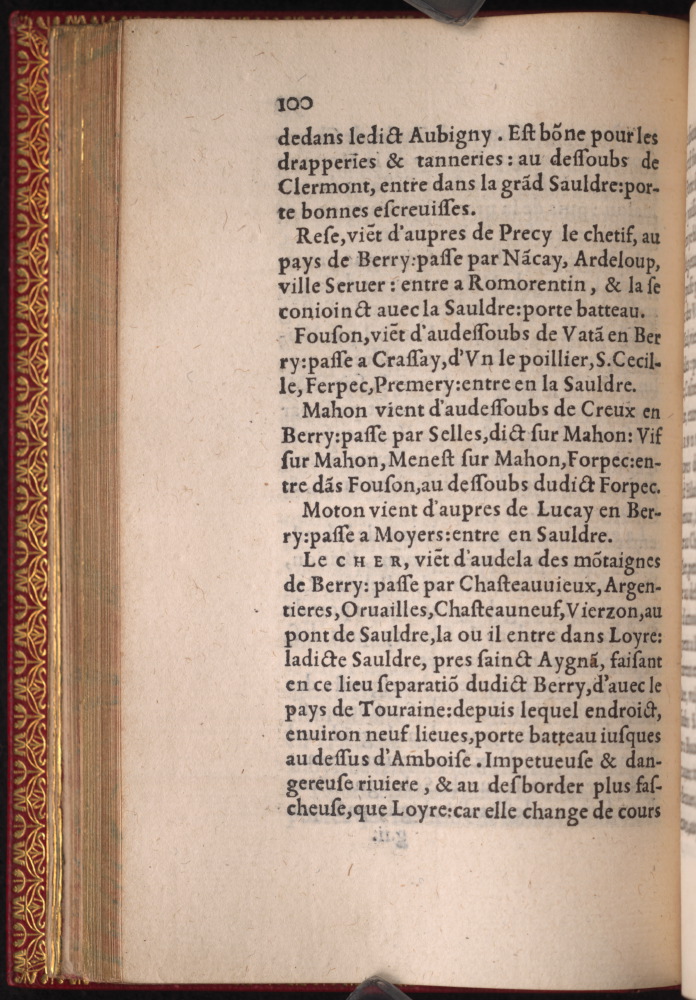 100
dedans ledict Aubigny . Eſt bõne pour les
drapperies & tanneries : au deſſoubs de
Clermont, entre dans la grãd Sauldre:por-
te bonnes eſcreuiſſes.
Reſe,viẽt d'aupres de Precy le chetif, au
pays de Berry:paſſe par Nãcay, Ardeloup,
ville Seruer : entre a Romorentin , & la ſe
conioinct auec la Sauldre:porte batteau.
Fouſon,viẽt d'audeſſoubs de Vatã en Ber
ry:paſſe a Craſſay,d'Vn le poillier,S.Cecil-
le, Ferpec,Premery:entre en la Sauldre.
Mahon vient d'audeſſoubs de Creux en
Berry:paſſe par Selles,dict ſur Mahon: Vif
ſur Mahon, Meneſt ſur Mahon,Forpec:en-
tre dãs Fouſon,au deſſoubs dudict Forpec.
Moton vient d'aupres de Lucay en Ber-
ry:paſſe a Moyers:entre en Sauldre.
Le CHER, viẽt d'audela des mõtaignes
de Berry: paſſe par Chaſteauuieux, Argen-
tieres,Oruailles,Chaſteauneuf,Vierzon,au
pont de Sauldre,la ou il entre dans Loyre:
ladicte Sauldre, pres ſainct Aygnã, faiſant
en ce lieu ſeparatiõ dudict Berry,d'auec le
pays de Touraine:depuis lequel endroict,
enuiron neuf lieues,porte batteau iuſques
au deſſus d'Amboiſe . Impetueuſe & dan-
gereuſe riuiere , & au deſborder plus faſ-
cheuſe,que Loyre:car elle change de cours